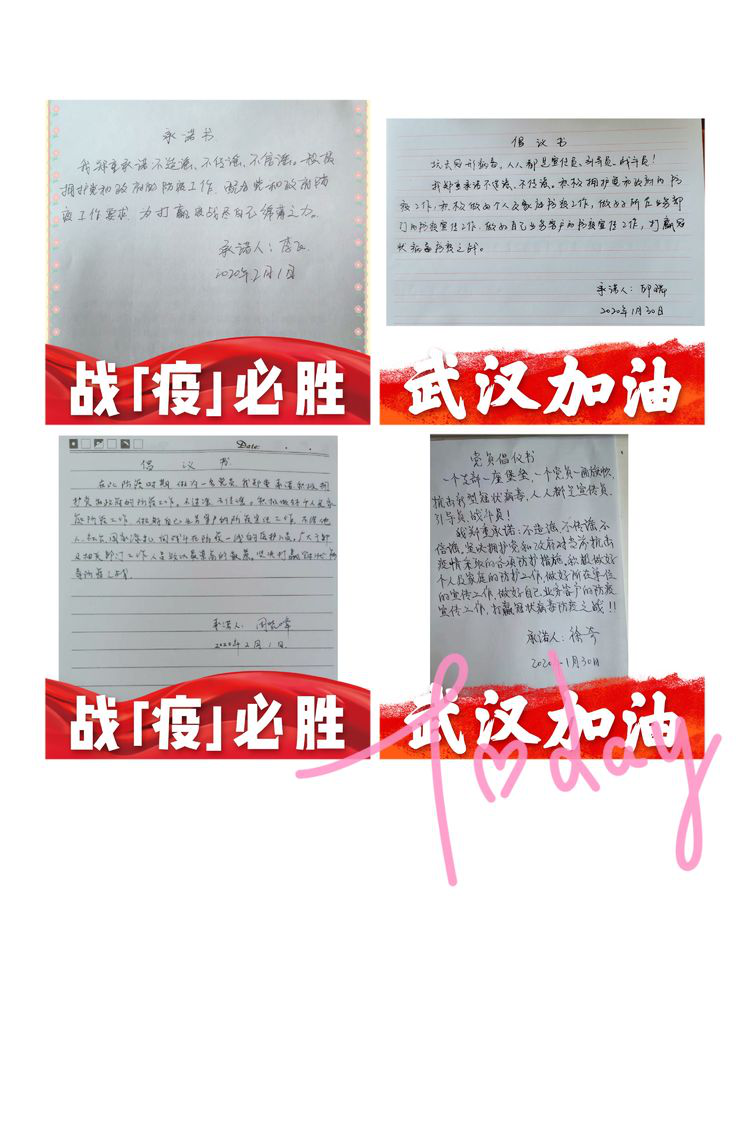 承诺书
我郑重承诺不造谣、不传谣、不信谣。积极
拥护党和政府的防疫工作,配合党和政府防
疫工作要求,为打赢疫战尽自己绵薄之力。
承诺人:李
2020年2月1日
战「疫」必胜
倡议书
抗击冠状病毒,人人都是宣传员、引导员、战斗员!
我郑重承诺不造谣、不传谣。积极拥护党和政府的防
疫工作,积极做好个人及家庭防疫工作,做好所在业务部
门的防疫宣传工作,做好自己业务客户的防疫宣传工作,打赢冠
状病毒防疫之战。
承诺人:
2020年1月30日
武汉加油
Date:
倡议书
在此阶段时期,做为一名党员,我郑重承诺积极拥
护党和政府的防疫工作,不造谣、不传谣。积极做好个人及家
庭防疫工作,做好自己业务客户的防疫宣传工作,不信他
人,向国家深扎
在防疫一线的医护人员,广大干部
及相关部门工作人员致以最崇高的敬意。坚决打赢冠状病
毒防疫之战。
承诺人:周晓峰
2020年2月1日
战「疫」必胜
党员倡议书
一个支部一座堡垒,一个党员一面旗帜,
抗击新型冠状病毒,人人都是宣传员、
引导员、战斗员!
我郑重承诺:不造谣、不传谣、不
信谣,坚决拥护党和政府对当前抗击
疫情采取的各项防护措施,积极做好
个人及家庭的防护工作,做好所在单位
的宣传工作,做好自己业务客户的防疫
宣传工作,打赢冠状病毒防疫之战!!
承诺人:徐奇
2020.1月30日
武汉加油
Today